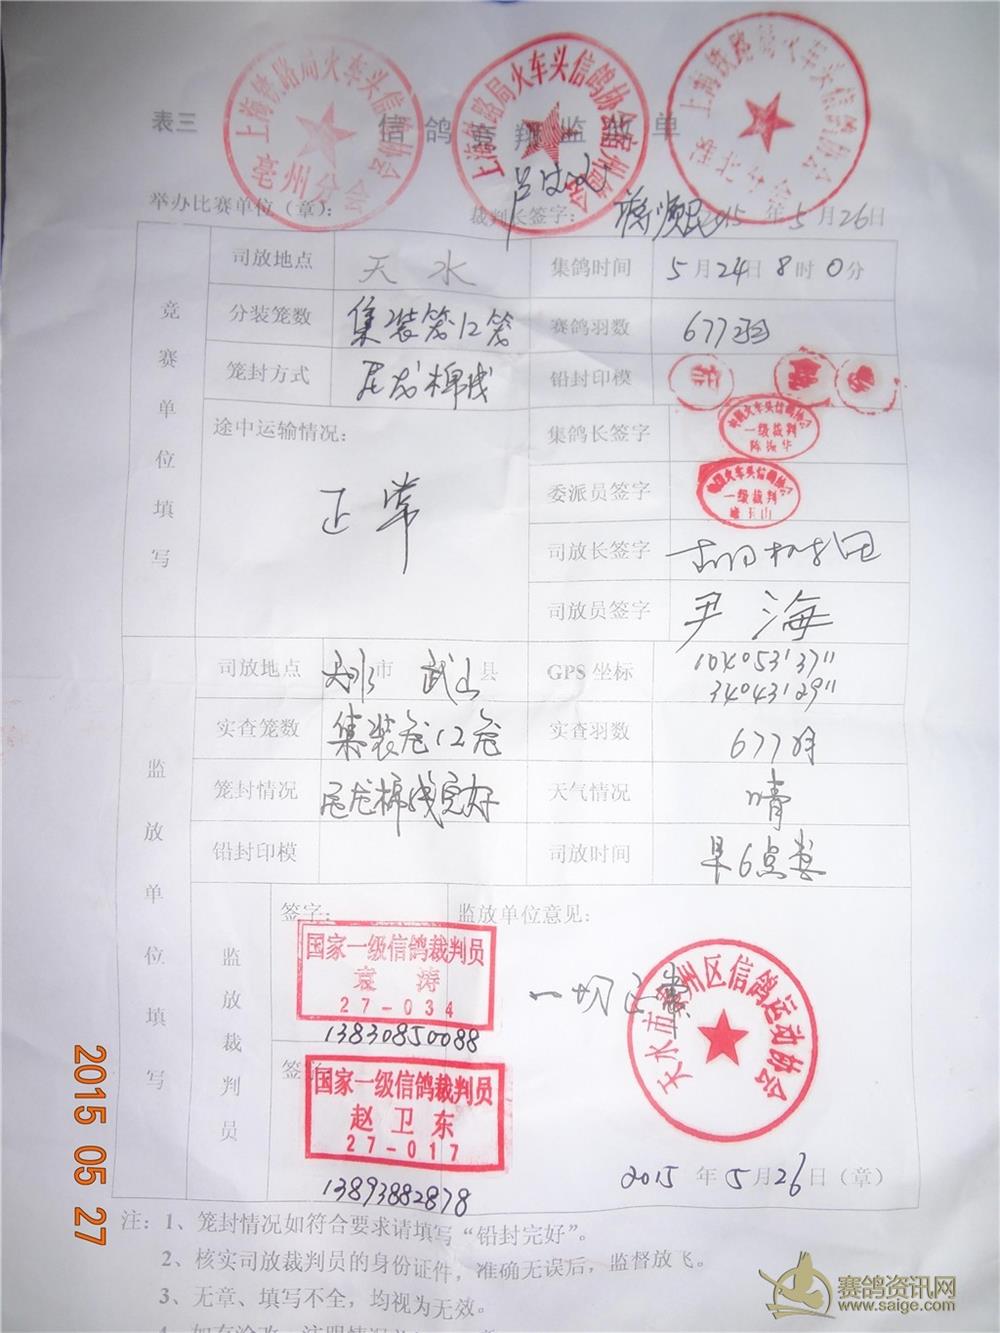 上海铁路局火车头信鸽协会
亳州分会
上海铁路局火车头信鸽协会宿州分会
上海铁路局火车头信鸽协会
淮北分会
表三
信鸽竞翔监放单
举办比赛单位（章）：
裁判长签字：
2015年5月26日
竞赛单位填写
司放地点 天水
集鸽时间 5月24日8时0分
分装笼数 集装笼12笼
赛鸽羽数 677羽
笼封方式 尼龙棉线
铅封印模
途中运输情况：
正常
集鸽长签字
一级裁判
委派员签字
一级裁判
司放长签字
司放员签字 尹海
监放单位填写
司放地点 天水市 武山县
GPS坐标 104053'37"
34043'29"
实查笼数 集装笼12笼
实查羽数 677羽
笼封情况 尼龙棉线完好
天气情况 晴
铅封印模
司放时间 早6点
监放裁判员
签字：
国家一级信鸽裁判员
袁涛
27-034
13830850088
签
国家一级信鸽裁判员
赵卫东
27-017
13893882878
监放单位意见：
一切正常
天水市秦州区信鸽运动协会
2015年5月26日（章）
注：1、笼封情况如符合要求请填写“铅封完好”。
2、核实司放裁判员的身份证件，准确无误后，监督放飞。
3、无章、填写不全，均视为无效。
2015 05 27
赛鸽资讯网
www.saige.com